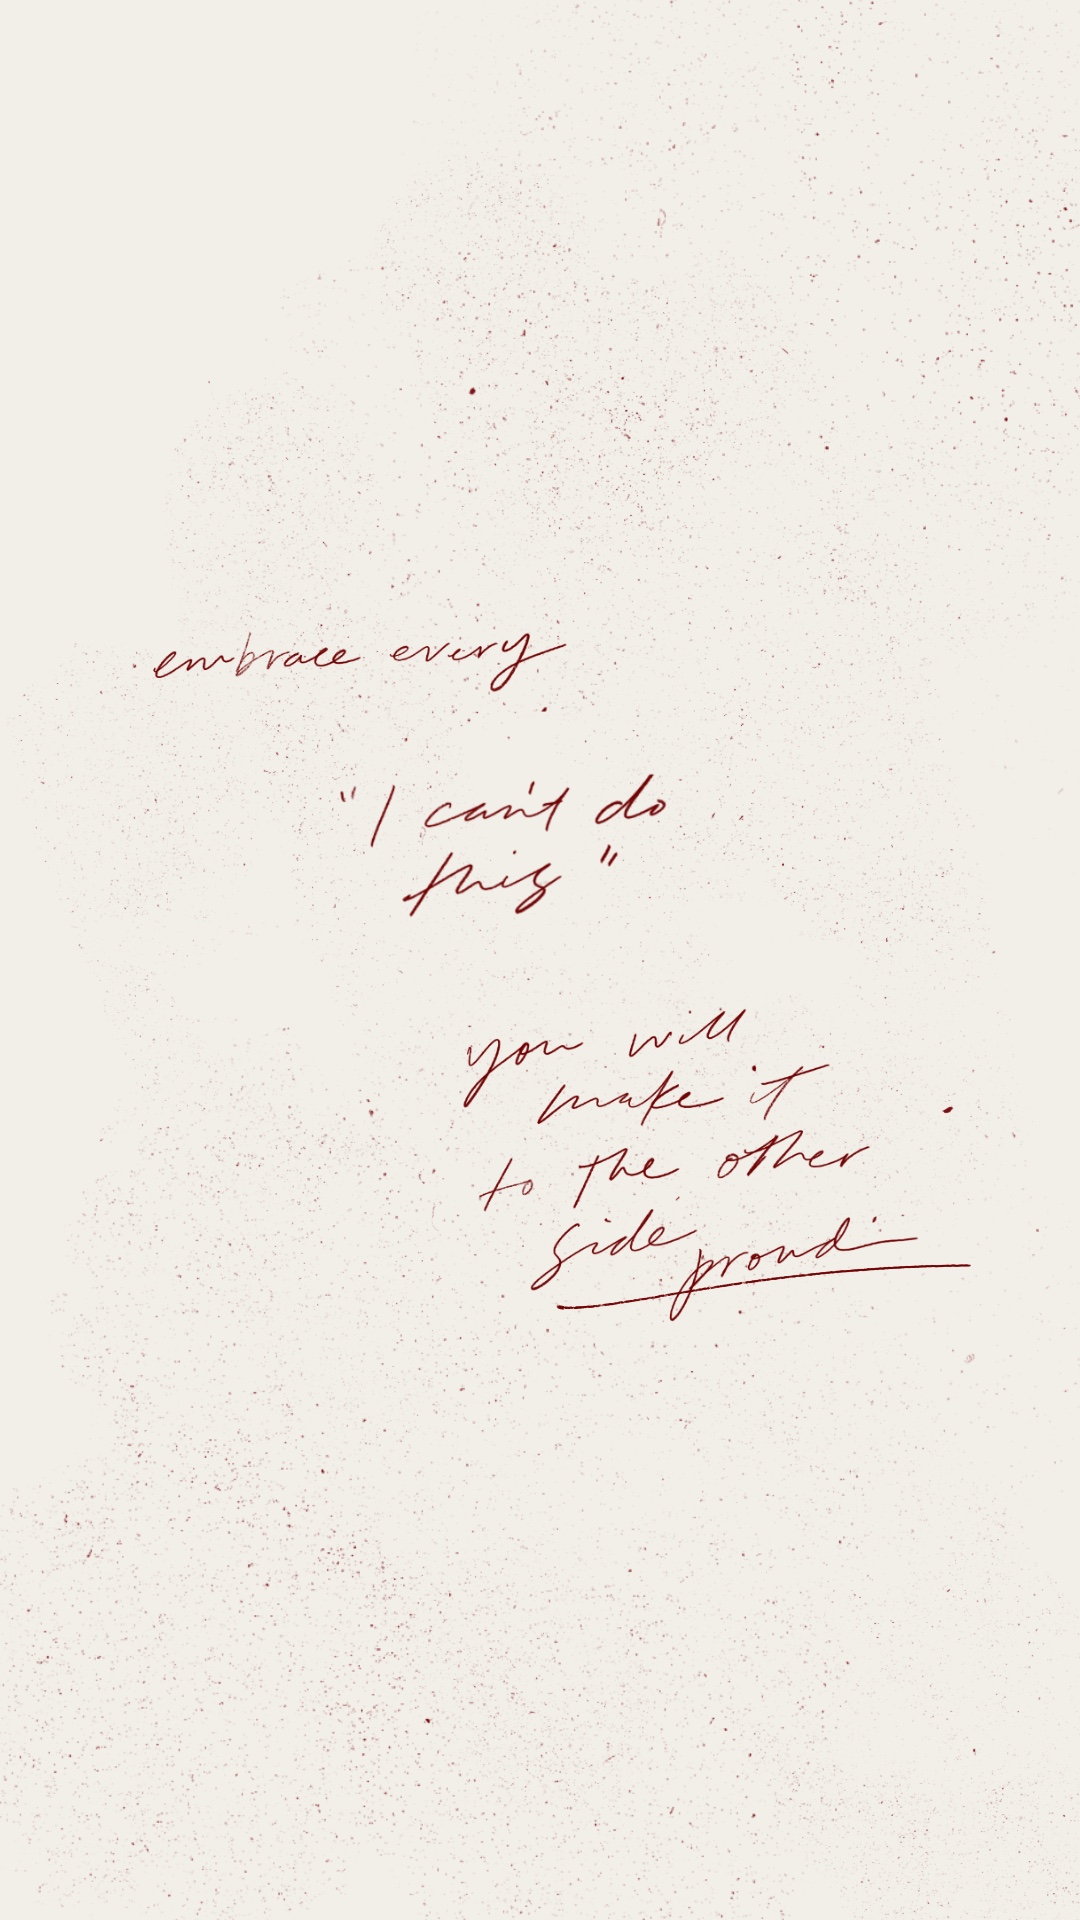 embrace every
"I can't do
this"
you will
make it
to the other
side proud